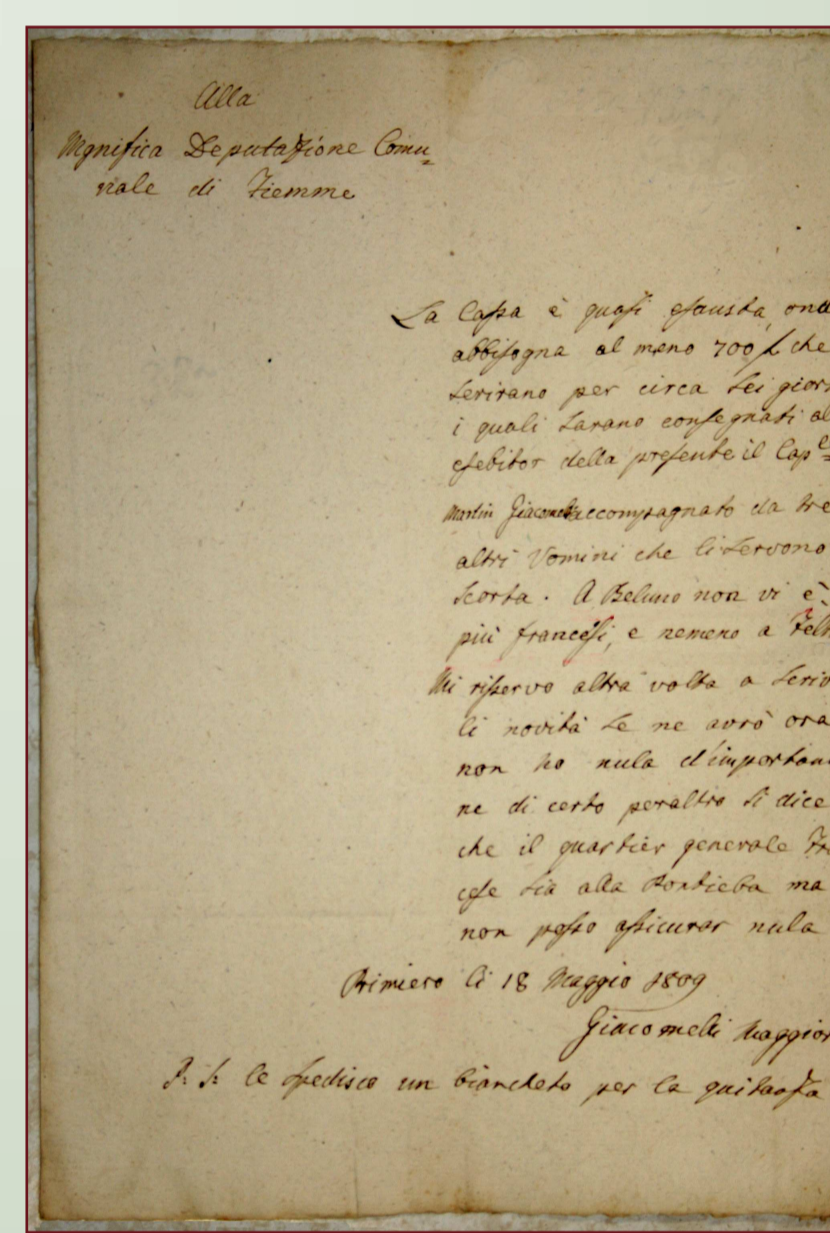 Alla
Mgnifica Deputazione Comu=
nale di Fiemme
La Cassa è quasi esausta, ond
abbisogna al meno 700 f che
serirano per circa sei giorn
i quali sarano consegnati al
esebitor della presente il Cap.e
Martin Giacomelli accompagnato da tre
altri Uomini che li servono
scorta. A Beluno non vi è
più francesi, e nemeno a Felt
Mi riservo altra volta a scriv
li novità se ne avrò ora
non ho nula d'importan
ne di certo peraltro si dice
che il quartier generale Fra
cese sia alla Pontieba ma
non posso assicurar nula
Primiero li 18 Maggio 1809
Giacomelli Maggior
P: S: le spedisco un biancheto per la quitanza